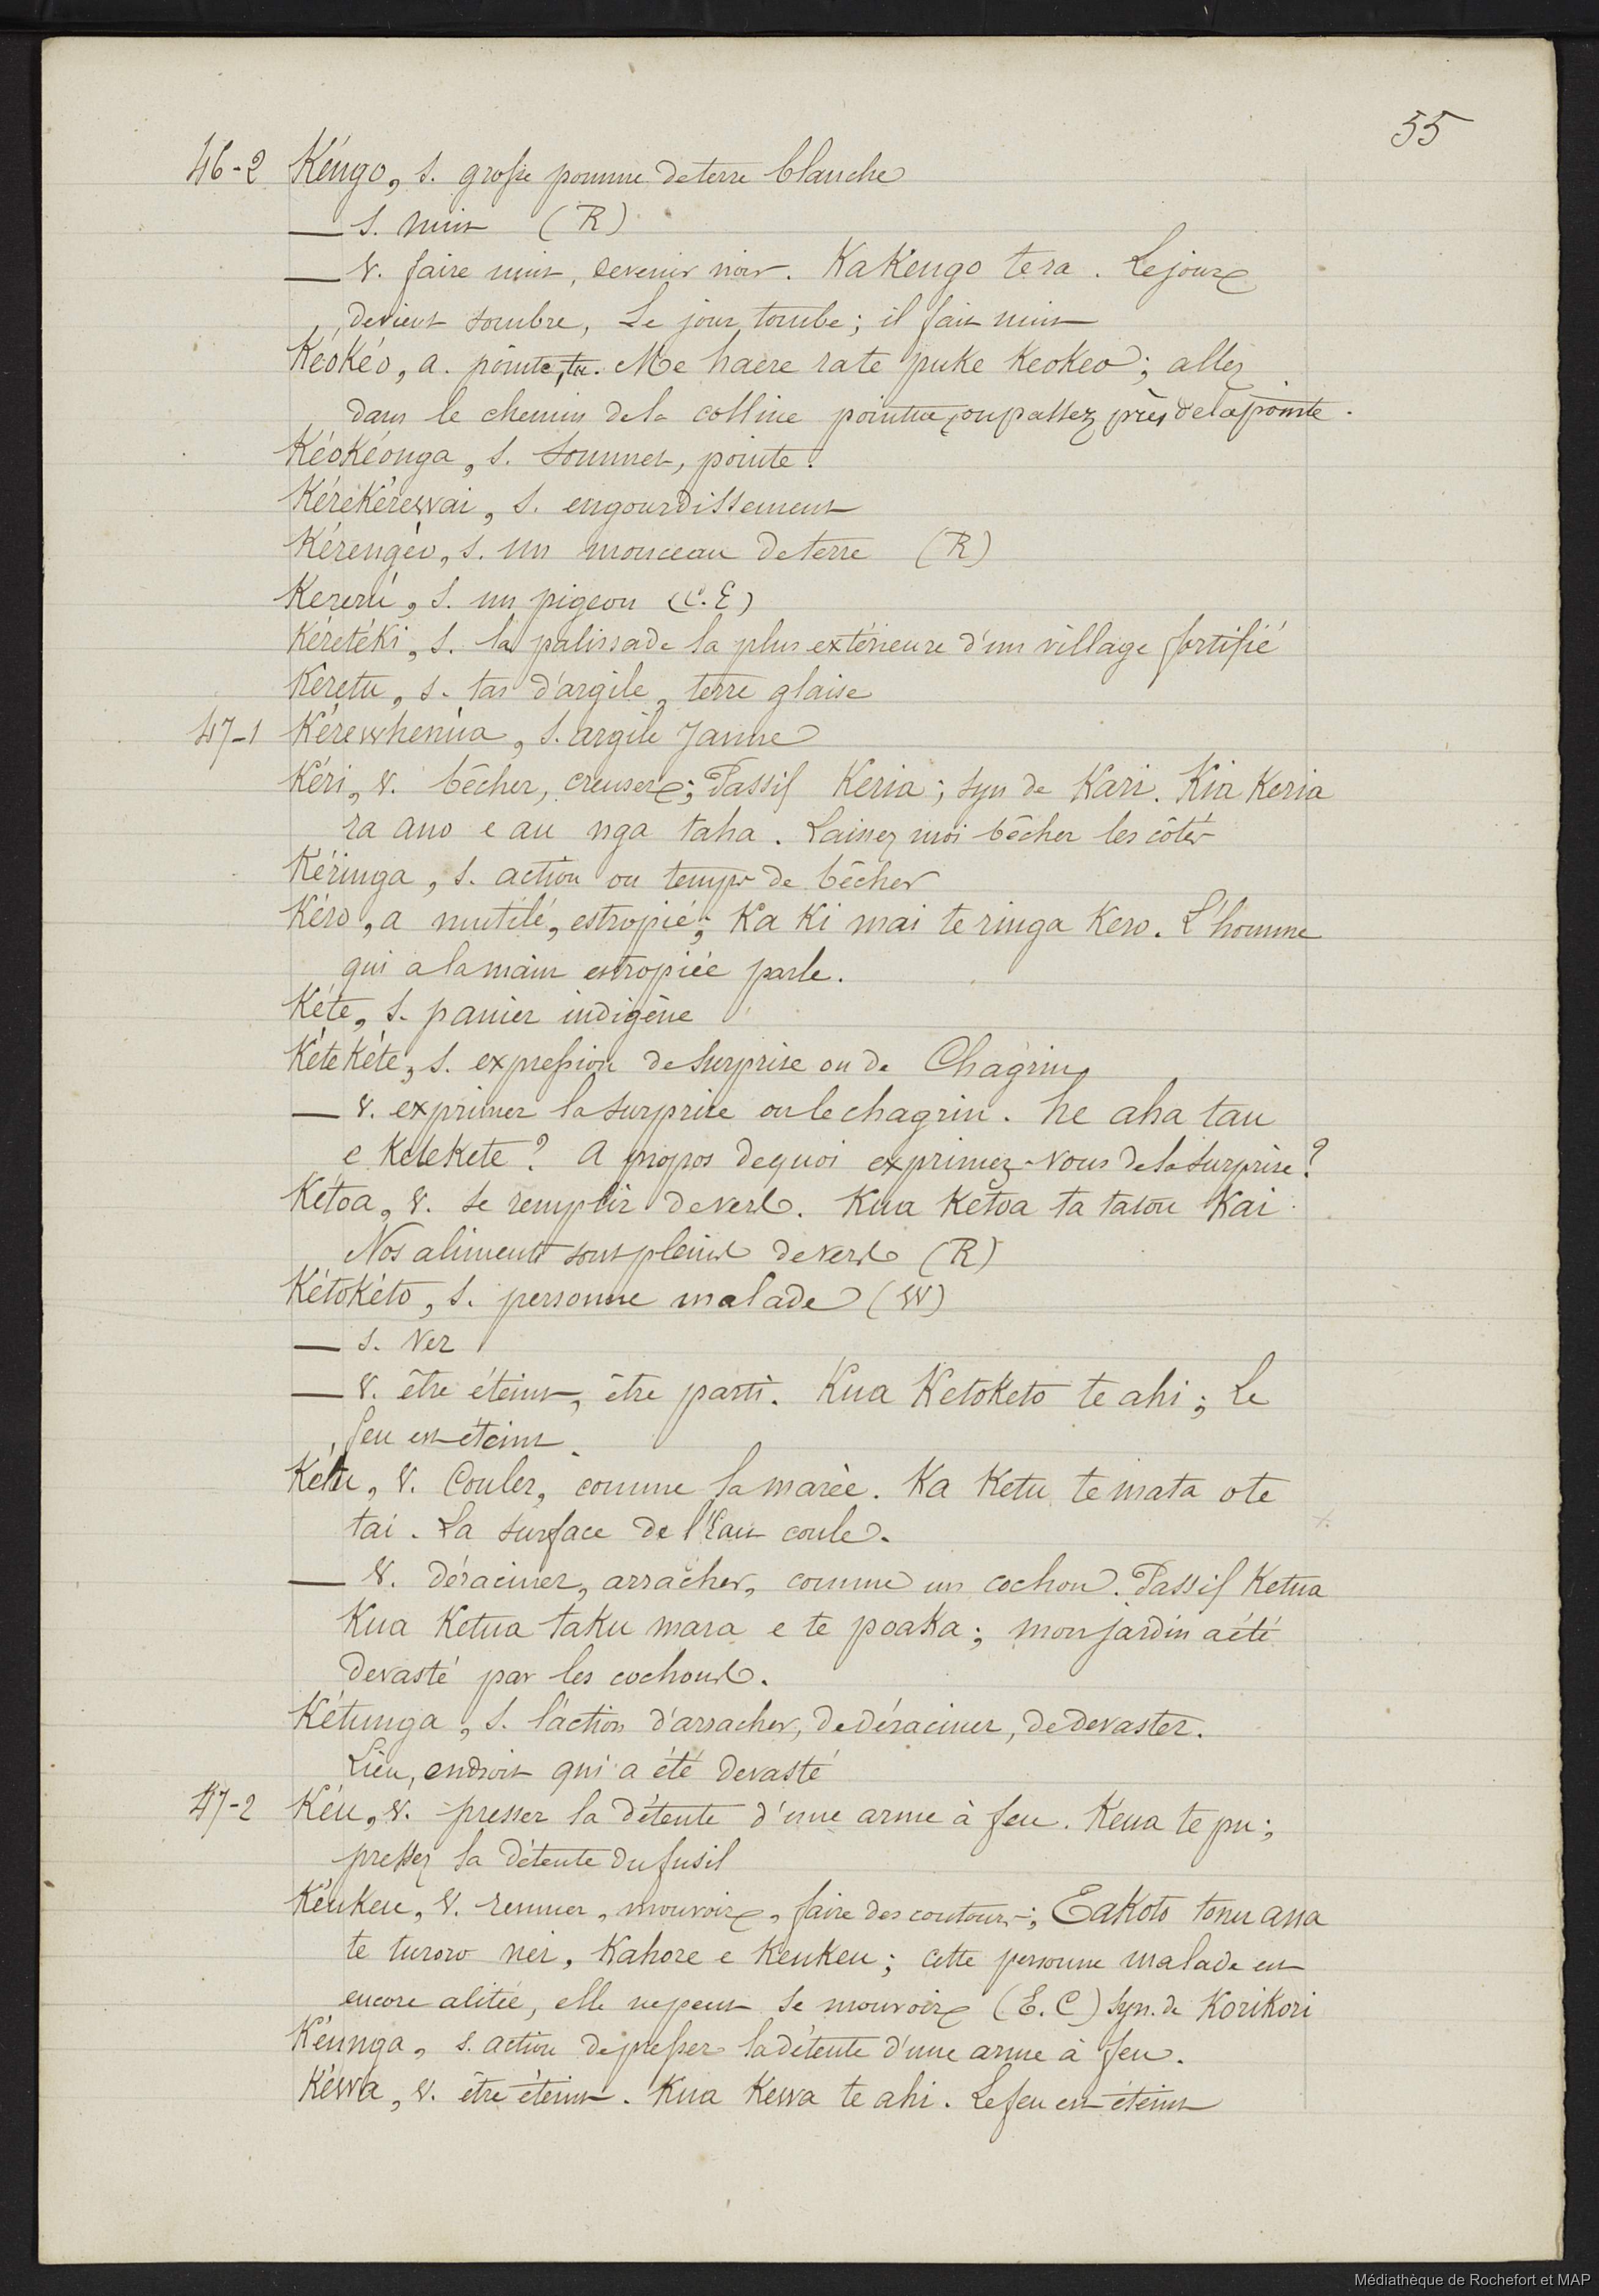 55
46-2 Kéngo, s. grosse pomme de terre blanche
— s. nuit (R)
— v. faire nuit, devenir noir. Ka Kengo te ra. Le jour
devient sombre, Le jour tombe; il fait nuit
Kéokéo, a. pointe, tu. Me haere ra te puke Keokeo; allez
dans le chemin de la colline pointue, ou passez près de la pointe.
Kéokéonga, s. sommet, pointe.
Kérékérewai, s. engourdissement
Kérengéo, s. un monceau de terre (R)
Kererú, s. un pigeon (C.E)
Kéretéki, s. la palissade la plus extérieure d'un village fortifié
Kéretu, s. tas d'argile, terre glaise
47-1 Kérewhenúa, s. argile Jaune
Kéri, v. bêcher, creuser; Passif Keria; syn de Kari. Kia Keria
ra ano e au nga taha. Laissez moi bêcher les côtés
Kéringa, s. action ou temps de bêcher
Kéro, a mutilé, estropié; Ka Ki mai te ringa Kero. L'homme
qui a la main estropiée parle.
Kéte, s. panier indigène
Kétekéte, s. expression de surprise ou de Chagrin,
— v. exprimer la surprise ou le chagrin. he aha tau
e Ketekete? A propos de quoi exprimez-vous de la surprise?
Kétoa, v. se remplir de vers. Kua Ketoa ta tatou Kai
Nos aliments sont pleins de vers (R)
Kétokéto, s. personne malade (W)
— s. Ver
— v. être éteint, être parti. Kua Ketoketo te ahi; Le
feu est éteint.
Kétu, v. Couler, comme la marée. Ka Ketu te mata o te
tai. La surface de l'Eau coule.
— v. déraciner, arracher, comme un cochon. Passif Ketua
Kua Ketua taku mara e te poaka; mon jardin a été
devasté par les cochons.
Kétunga, s. l'action d'arracher, de déraciner, de devaster.
Lieu, endroit qui a été devasté
47-2 Kéu, v. presser la détente d'une arme à feu. Keua te pu;
pressez la détente du fusil
Kéukeu, v. remuer, mouvoir, faire des contours; E akoto tonu ana
te turoro nei, Kahore e Keukeu; cette personne malade est
encore alitée, elle ne peut se mouvoir (E.C) Syn. de Korikori
Kéunga, s. action de presser la détente d'une arme à feu.
Kéwa, v. être éteint. Kua Kewa te ahi. Le feu est éteint
Médiathèque de Rochefort et MAP